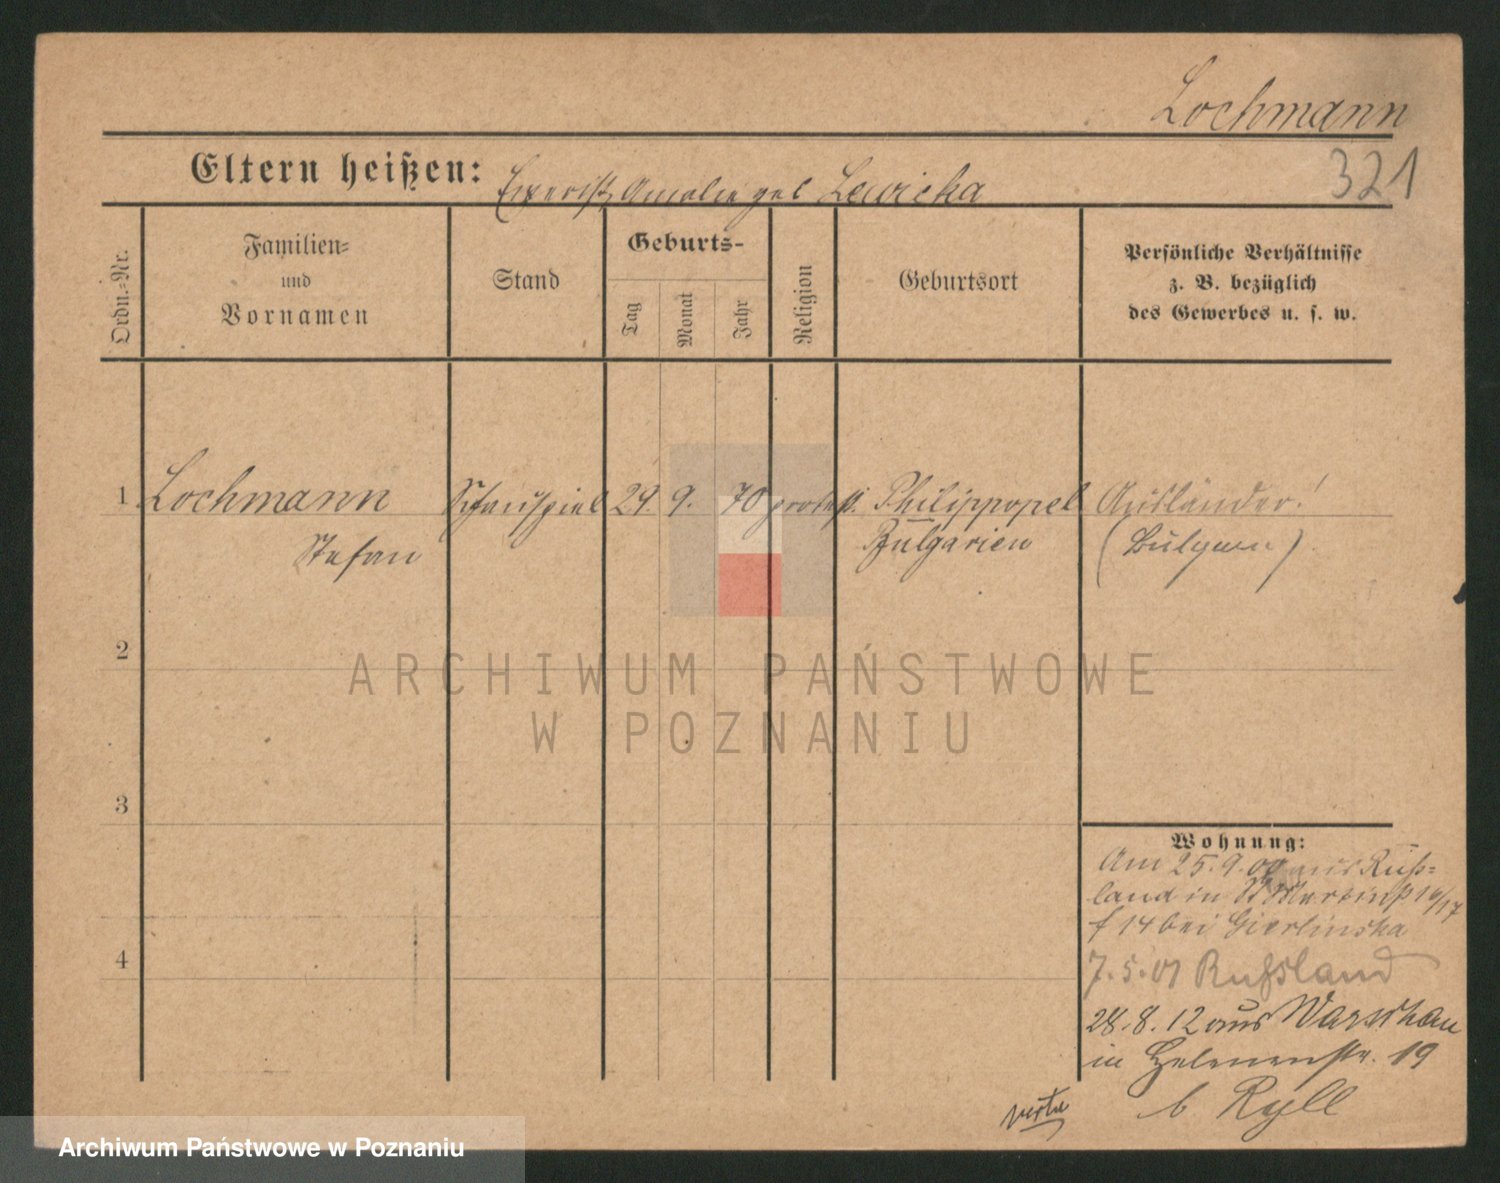 Lochmann
321
Eltern heißen: Amalie geb Lewicka
Ordn.=Nr.
Familien=
und
Vornamen
Stand
Geburts-
Tag
Monat
Jahr
Religion
Geburtsort
Persönliche Verhältnisse
z. B. bezüglich
des Gewerbes u. s. w.
1 Lochmann Schauspiel 29. 9. 70 protest. Philippopel Ausländer!
Stefan Bulgarien (Bulgaren).
2
3
4
Wohnung:
Am 25.9.00 aus Ruß=
land in St Martinstr 16/17
f 14 bei Gierlinska
7.5.01 Russland
28.8.12 aus Warschau
in Helenenstr. 19
b. Ryll
verte
ARCHIWUM PAŃSTWOWE
W POZNANIU
Archiwum Państwowe w Poznaniu